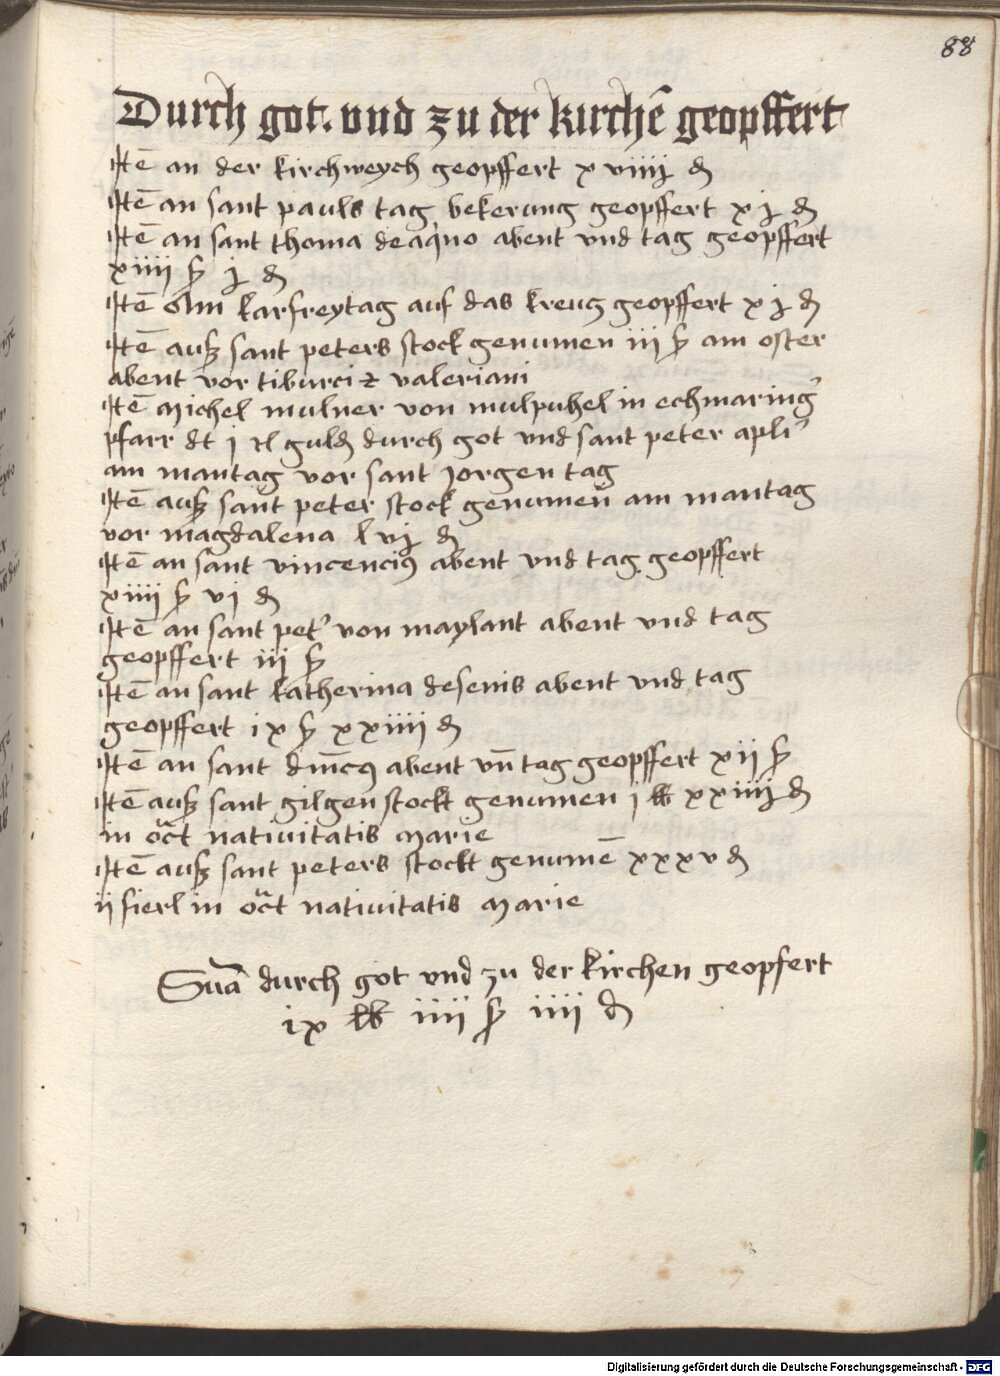 88
Durch got. vnd zu der kirchē geopffert
Itē an der kirchweych geopffert xviiij d
Itē an sant pauls tag bekerung geopffert xj d
Itē an sant thoma deaqno abent vnd tag geopffert
xiiii ß j d
Itē Am karfreytag auf das kreucz geopffert xj d
Itē ausz sant peters stock genumen iii ß am oster
abent vor tiburci et valeriani
Itē michel mulner von mulpuhel in echmaring
pfarr dt j rl guld durch got vnd sant peter apli
am mantag vor sant jorgen tag
Itē ausz sant peter stock genumen am mantag
vor magdalena l vj d
Itē an sant vincencius abent vnd tag geopffert
xiiii ß vi d
Itē an sant pet' von maylant abent vnd tag
geopffert iii ß
Itē an sant katherina desenis abent vnd tag
geopffert ix ß xxiiii d
Itē an sant dm̄cus abent vn̄ tag geopffert xii ß
Itē ausz sant gilgen stockt genumen j lb xxiiij d
in oct nativitatis marie
Itē ausz sant peters stockt genumē xxxv d
ij fierl in oct nativitatis marie
Suā durch got vnd zu der kirchen geopfert
ix lb iiii ß iiii d
Digitalisierung gefördert durch die Deutsche Forschungsgemeinschaft - DFG